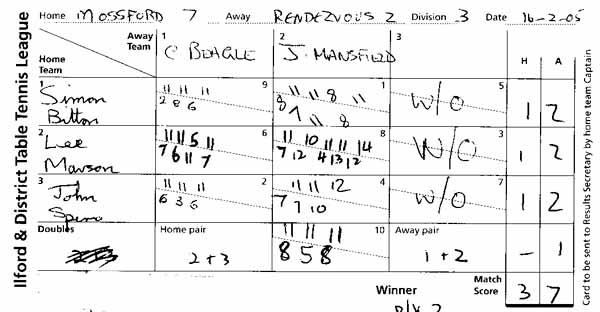 Home MOSSFORD 7 Away RENDEZVOUS 2 Division 3 Date 16-2-05
Ilford & District Table Tennis League
Away Team
Home Team
1 C BEAGLE
2 J. MANSFIELD
3
H A
1 Simon Bitton
9
11 11 11
2 8 6
1
11 11 8 11
8 7 11 8
5
W/O
1 2
2 Lee Mawson
6
11 11 5 11
7 6 11 7
8
11 10 11 11 14
7 12 4 13 12
3
W/O
1 2
3 John Spero
2
11 11 11
6 3 6
4
11 11 12
7 7 10
7
W/O
1 2
Doubles
Home pair
2+3
10
11 11 11
8 5 8
Away pair
1+2
- 1
Winner
Match Score 3 7
Card to be sent to Results Secretary by home team Captain